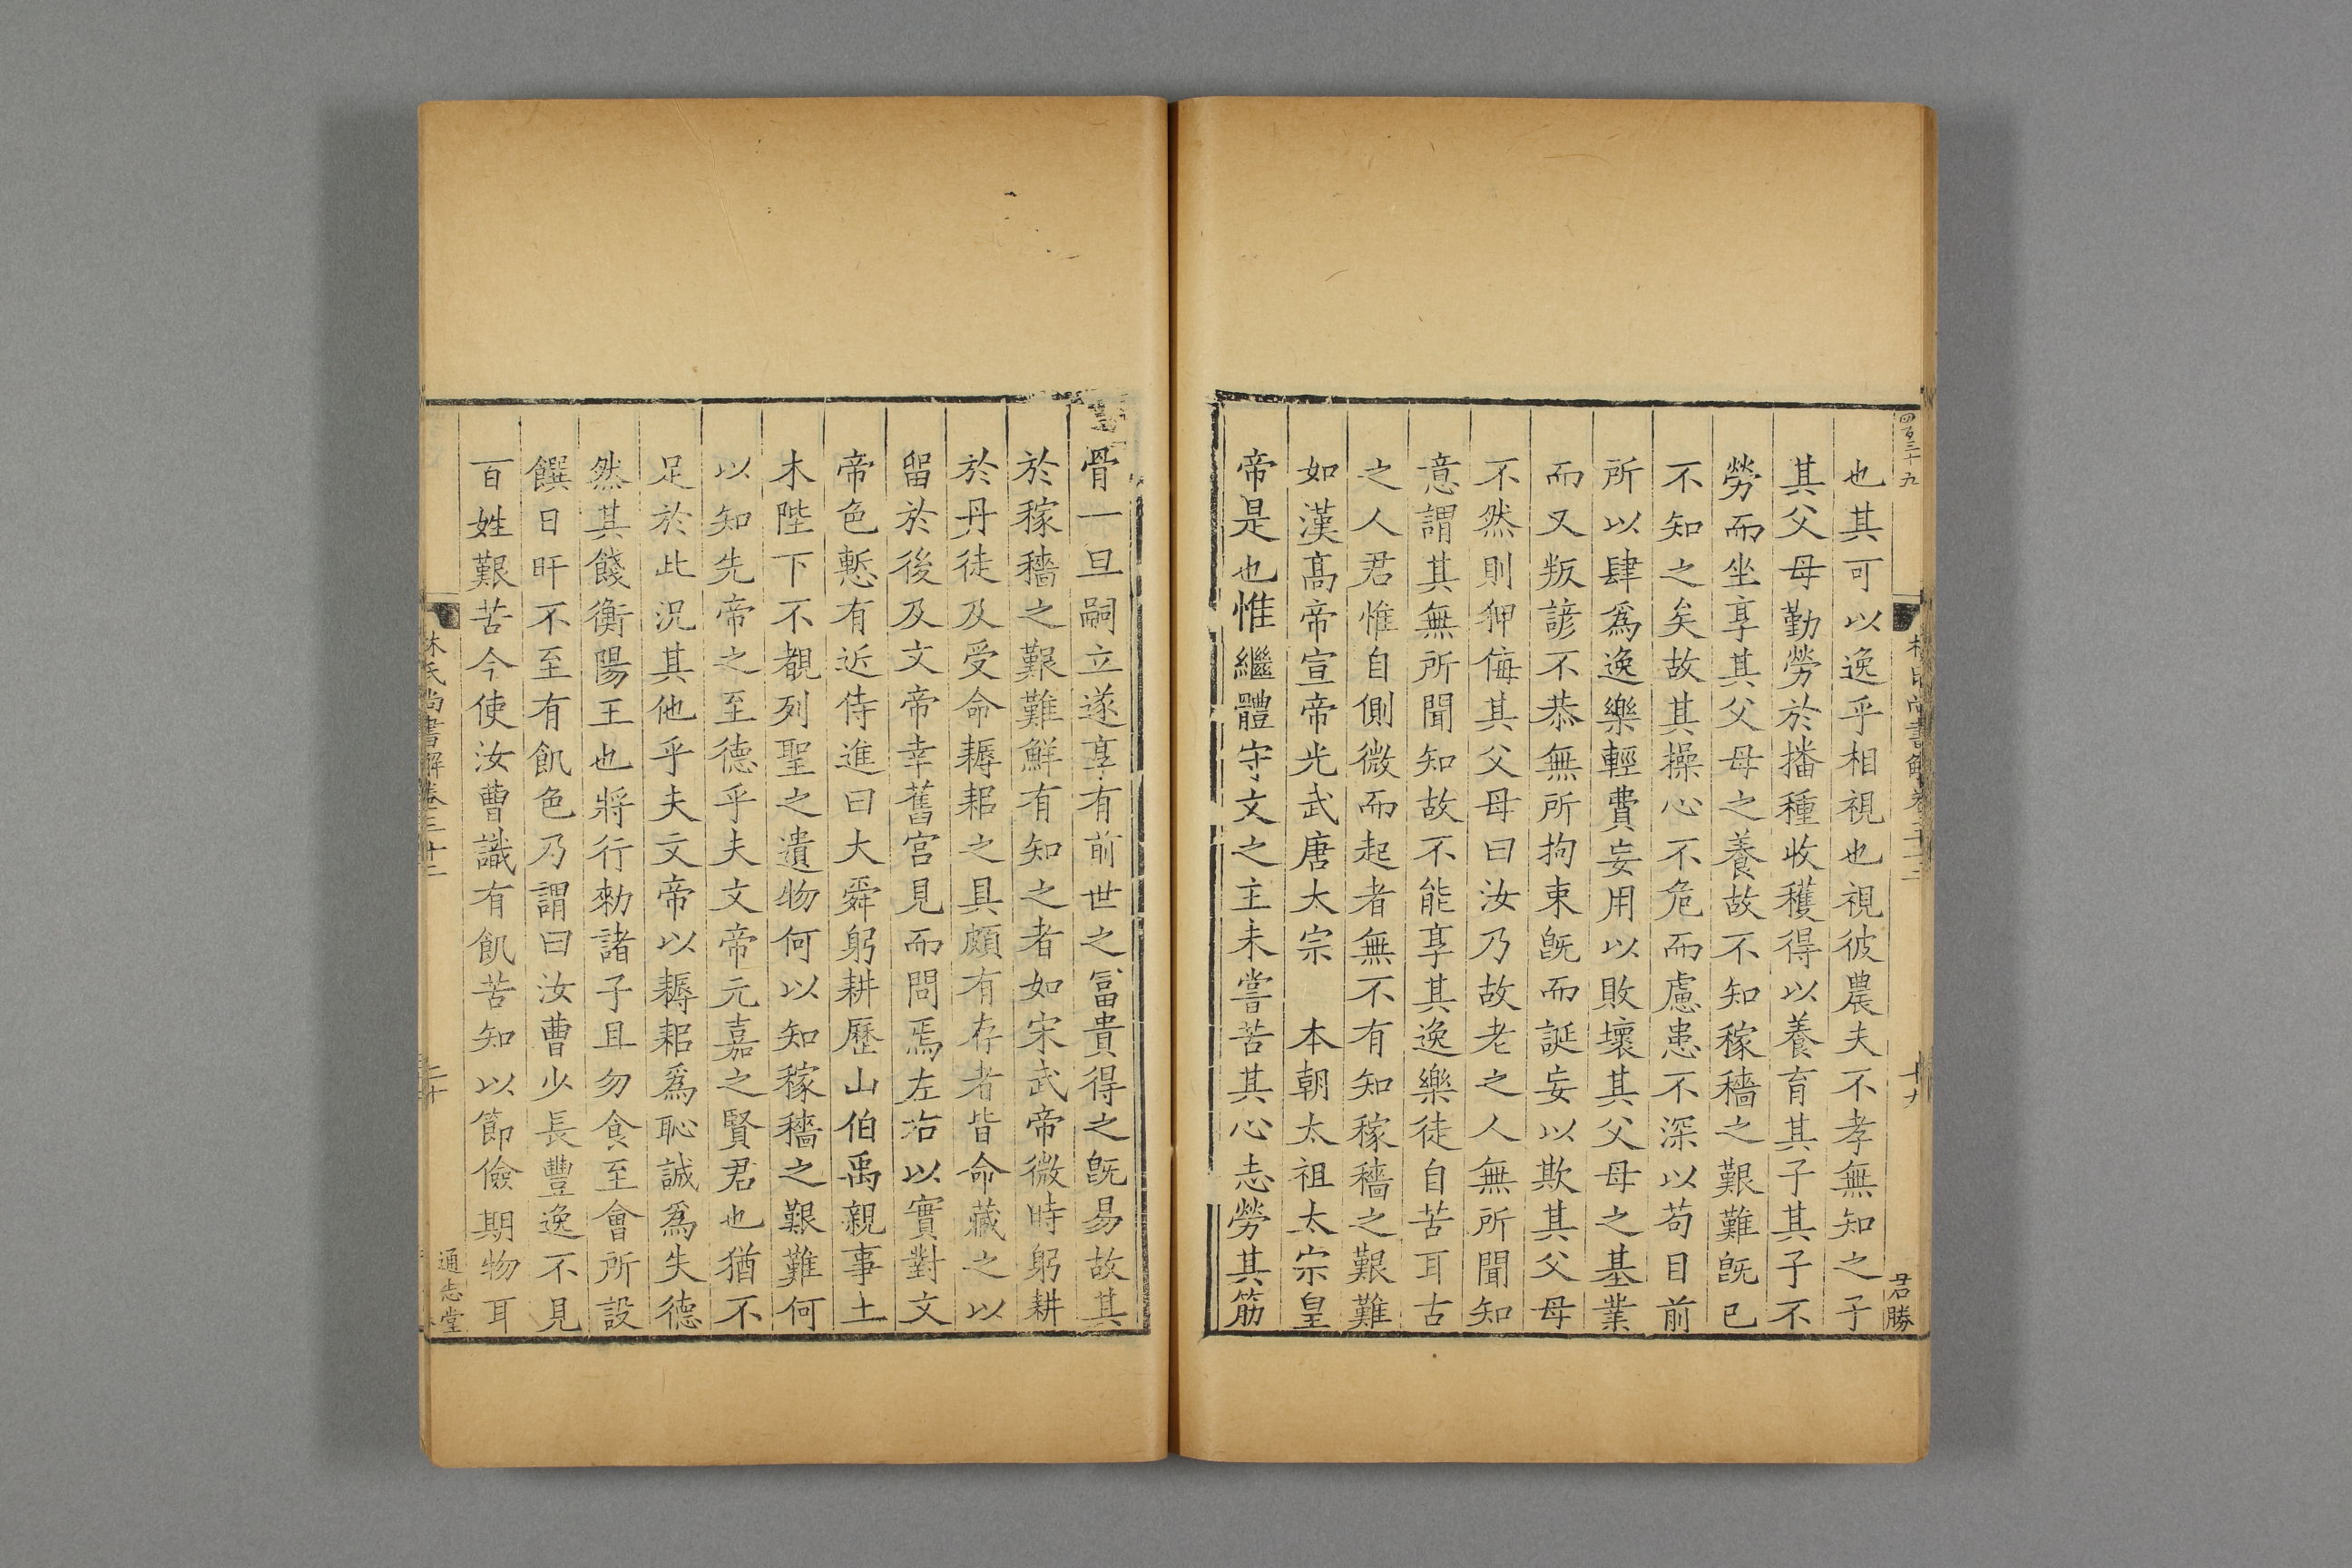 四百三十九
林氏尚書解卷三十二
十九
君勝
也其可以逸乎相視也視彼農夫不孝無知之子
其父母勤勞於播種收穫得以養育其子其子不
勞而坐享其父母之養故不知稼穡之艱難旣已
不知之矣故其操心不危而慮患不深以苟目前
所以肆爲逸樂輕費妄用以敗壞其父母之基業
而又叛諺不恭無所拘束旣而誕妄以欺其父母
不然則狎侮其父母曰汝乃故老之人無所聞知
意謂其無所聞知故不能享其逸樂徒自苦耳古
之人君惟自側微而起者無不有知稼穡之艱難
如漢高帝宣帝光武唐太宗　本朝太祖太宗皇
帝是也惟繼體守文之主未嘗苦其心志勞其筋
骨一旦嗣立遂享有前世之冨貴得之旣易故其
於稼穡之艱難鮮有知之者如宋武帝微時躬耕
於丹徒及受命耨耜之具頗有存者皆命藏之以
留於後及文帝幸舊宮見而問焉左右以實對文
帝色慙有近侍進曰大舜躬耕歷山伯禹親事土
木陛下不覩列聖之遺物何以知稼穡之艱難何
以知先帝之至德乎夫文帝元嘉之賢君也猶不
足於此況其他乎夫文帝以耨耜爲恥誠爲失德
然其餞衡陽王也將行勑諸子且勿食至會所設
饌日旰不至有飢色乃謂曰汝曹少長豐逸不見
百姓艱苦今使汝曹識有飢苦知以節儉期物耳
林氏尚書解卷三十二
二十
通志堂